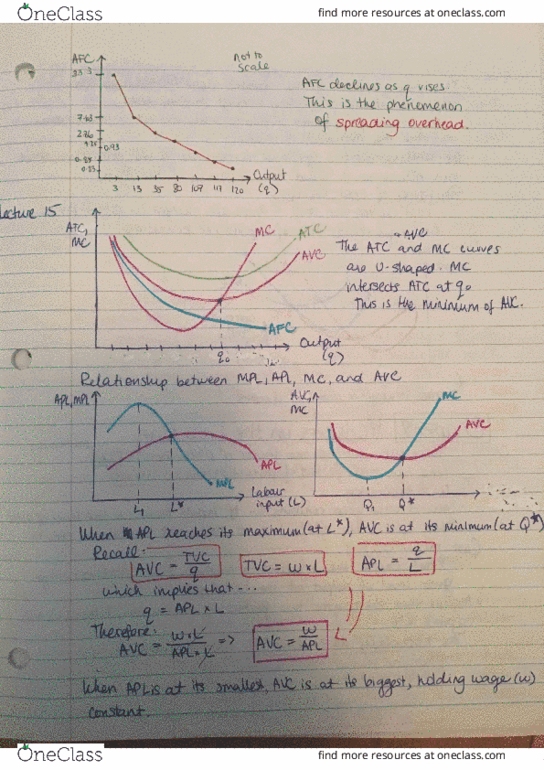 OneClass
find more resources at oneclass.com
AFC
33.3
7.63
2.86
0.93
Output
(q)
3 13 35 80 107 117 120
not to
scale
AFC declines as q rises.
This is the phenomenon
of spreading overhead.
lecture 15
ATC,
MC
MC
ATC
AVC
AFC
q₀
Output
(q)
AVC
The ATC and MC curves
are U-shaped. MC
intersects ATC at q₀
This is the minimum of AVC.
Relationship between MPL, APL, MC, and AVC
APL, MPL
APL
MPL
L₁ L*
Labour
input (L)
AVC,
MC
MC
AVC
Q₁ Q*
When APL reaches its maximum (at L*), AVC is at its minimum (at Q*)
Recall:
AVC = TVC/q
TVC = w x L
APL = q/L
which implies that...
q = APL x L
Therefore:
AVC = w x L / APL x L => AVC = w/APL
When APL is at its smallest, AVC is at its biggest, holding wage (w)
constant.
OneClass
find more resources at oneclass.com